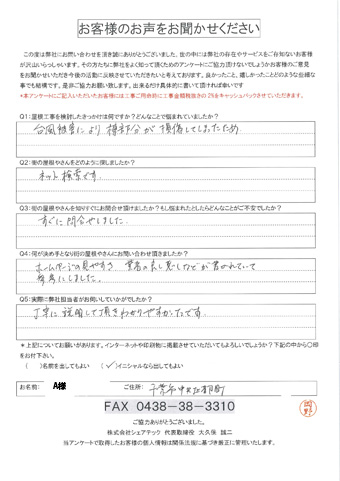 お客様のお声をお聞かせください
この度は弊社にお問い合わせを頂き誠にありがとうございました。世の中には弊社の存在やサービスをご存知ないお客様
が沢山いらっしゃいます。その方たちに弊社をよく知って頂く為にアンケートにご協力頂けないでしょうかお客様のご意見
をお聞かせいただき今後の活動に反映させていただきたいと考えております。良かったこと、嬉しかったことどのような些細な
事でも結構です。是非ご協力お願い致します。出来るだけ具体的に書いて頂ければ幸いです
*本アンケートにご記入いただいたお客様には工事ご用命時に工事金額税抜きの2%をキャッシュバックさせていただきます。
Q1:屋根工事を検討したきっかけは何ですか?どんなことで悩まれていましたか?
台風被害により棟部分が損傷してしまったため
Q2:街の屋根やさんをどのように探しましたか?
ネット検索です。
Q3:街の屋根やさんを知りすぐにお問合せ頂けましたか?もし悩まれたとしたらどんなことがご不安でしたか?
すぐに問合せしました。
Q4:何が決め手となり街の屋根やさんにお問い合わせ頂きましたか?
ホームページの見やすさ 業者の良し悪しなどが書かれていて
参考にしました。
Q5:実際に弊社担当者がお伺いしていかがでしたか?
丁寧に説明して頂きわかりやすかったです。
*上記についてお願いがあります。インターネットや印刷物に掲載させていただいてもよろしいでしょうか?下記の中から〇印
をお付下さい。
( )名前を出してもよい (✓)イニシャルなら出してもよい
お名前: A様 ご住所: 千葉市中央区都町
FAX 0438-38-3310
ご協力ありがとうございました。
株式会社シェアテック 代表取締役 大久保 誠二
当アンケートで取得したお客様の個人情報は関係法規に基づき厳正に管理いたします。